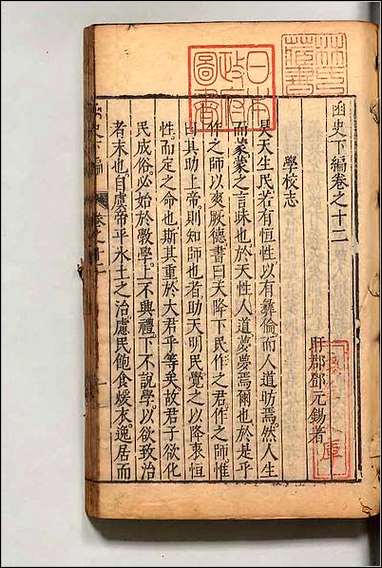 函史下編卷之十二
盱郡鄧元錫著
學校志
昊天生民若有恒性以有彝倫而人道昉焉然人生
而蒙蒙之言昧也於天性人道夢夢焉爾也於是乎
作之師以爽厥德書曰天降下民作之君作之師惟
曰其助上帝則知師也者助天明民覺之以降衷恒
性而定之命也斯其重於大君乎等矣故君子欲化
民成俗必始於教學上不興禮下不說學以欲致治
者末也自虞帝平水土之治慮民飽食煖衣逸居而
日本
政府
圖書